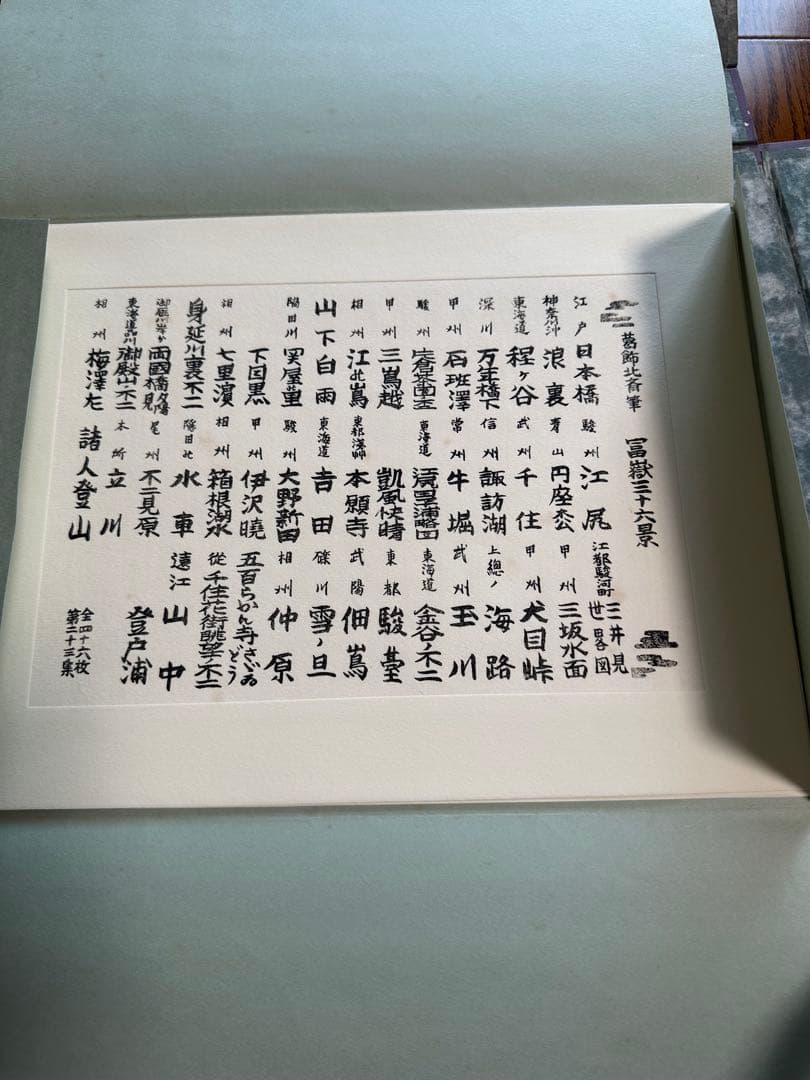 葛飾北斎筆 冨嶽三十六景
江戸日本橋 駿州江尻 江都駿河町三井見世畧図
神奈川沖浪裏 青山円座枩 甲州三坂水面
東海道程ヶ谷 武州千住 甲州犬目峠
深川万年橋下 信州諏訪湖 上總ノ海路
甲州石班澤 常州牛堀 武州玉川
駿州 東海道 東海道金谷ノ不二
甲州三嶌越 凱風快晴 東都駿臺
相州江の嶌 東都浅艸本願寺 武陽佃嶌
山下白雨 東海道吉田 礫川雪ノ旦
隅田川関屋の里 駿州大野新田 相州仲原
下目黒 甲州伊沢暁 五百らかん寺さざゐどう
相州七里濱 相州箱根湖水 従千住花街眺望ノ不二
身延川裏不二 隠田の水車 遠江山中
御厩川岸ゟ両國橋夕陽見 尾州不二見原 登戸浦
東海道品川御殿山ノ不二 本所立川
相州梅澤左 諸人登山
全四十六枚
第二十三集